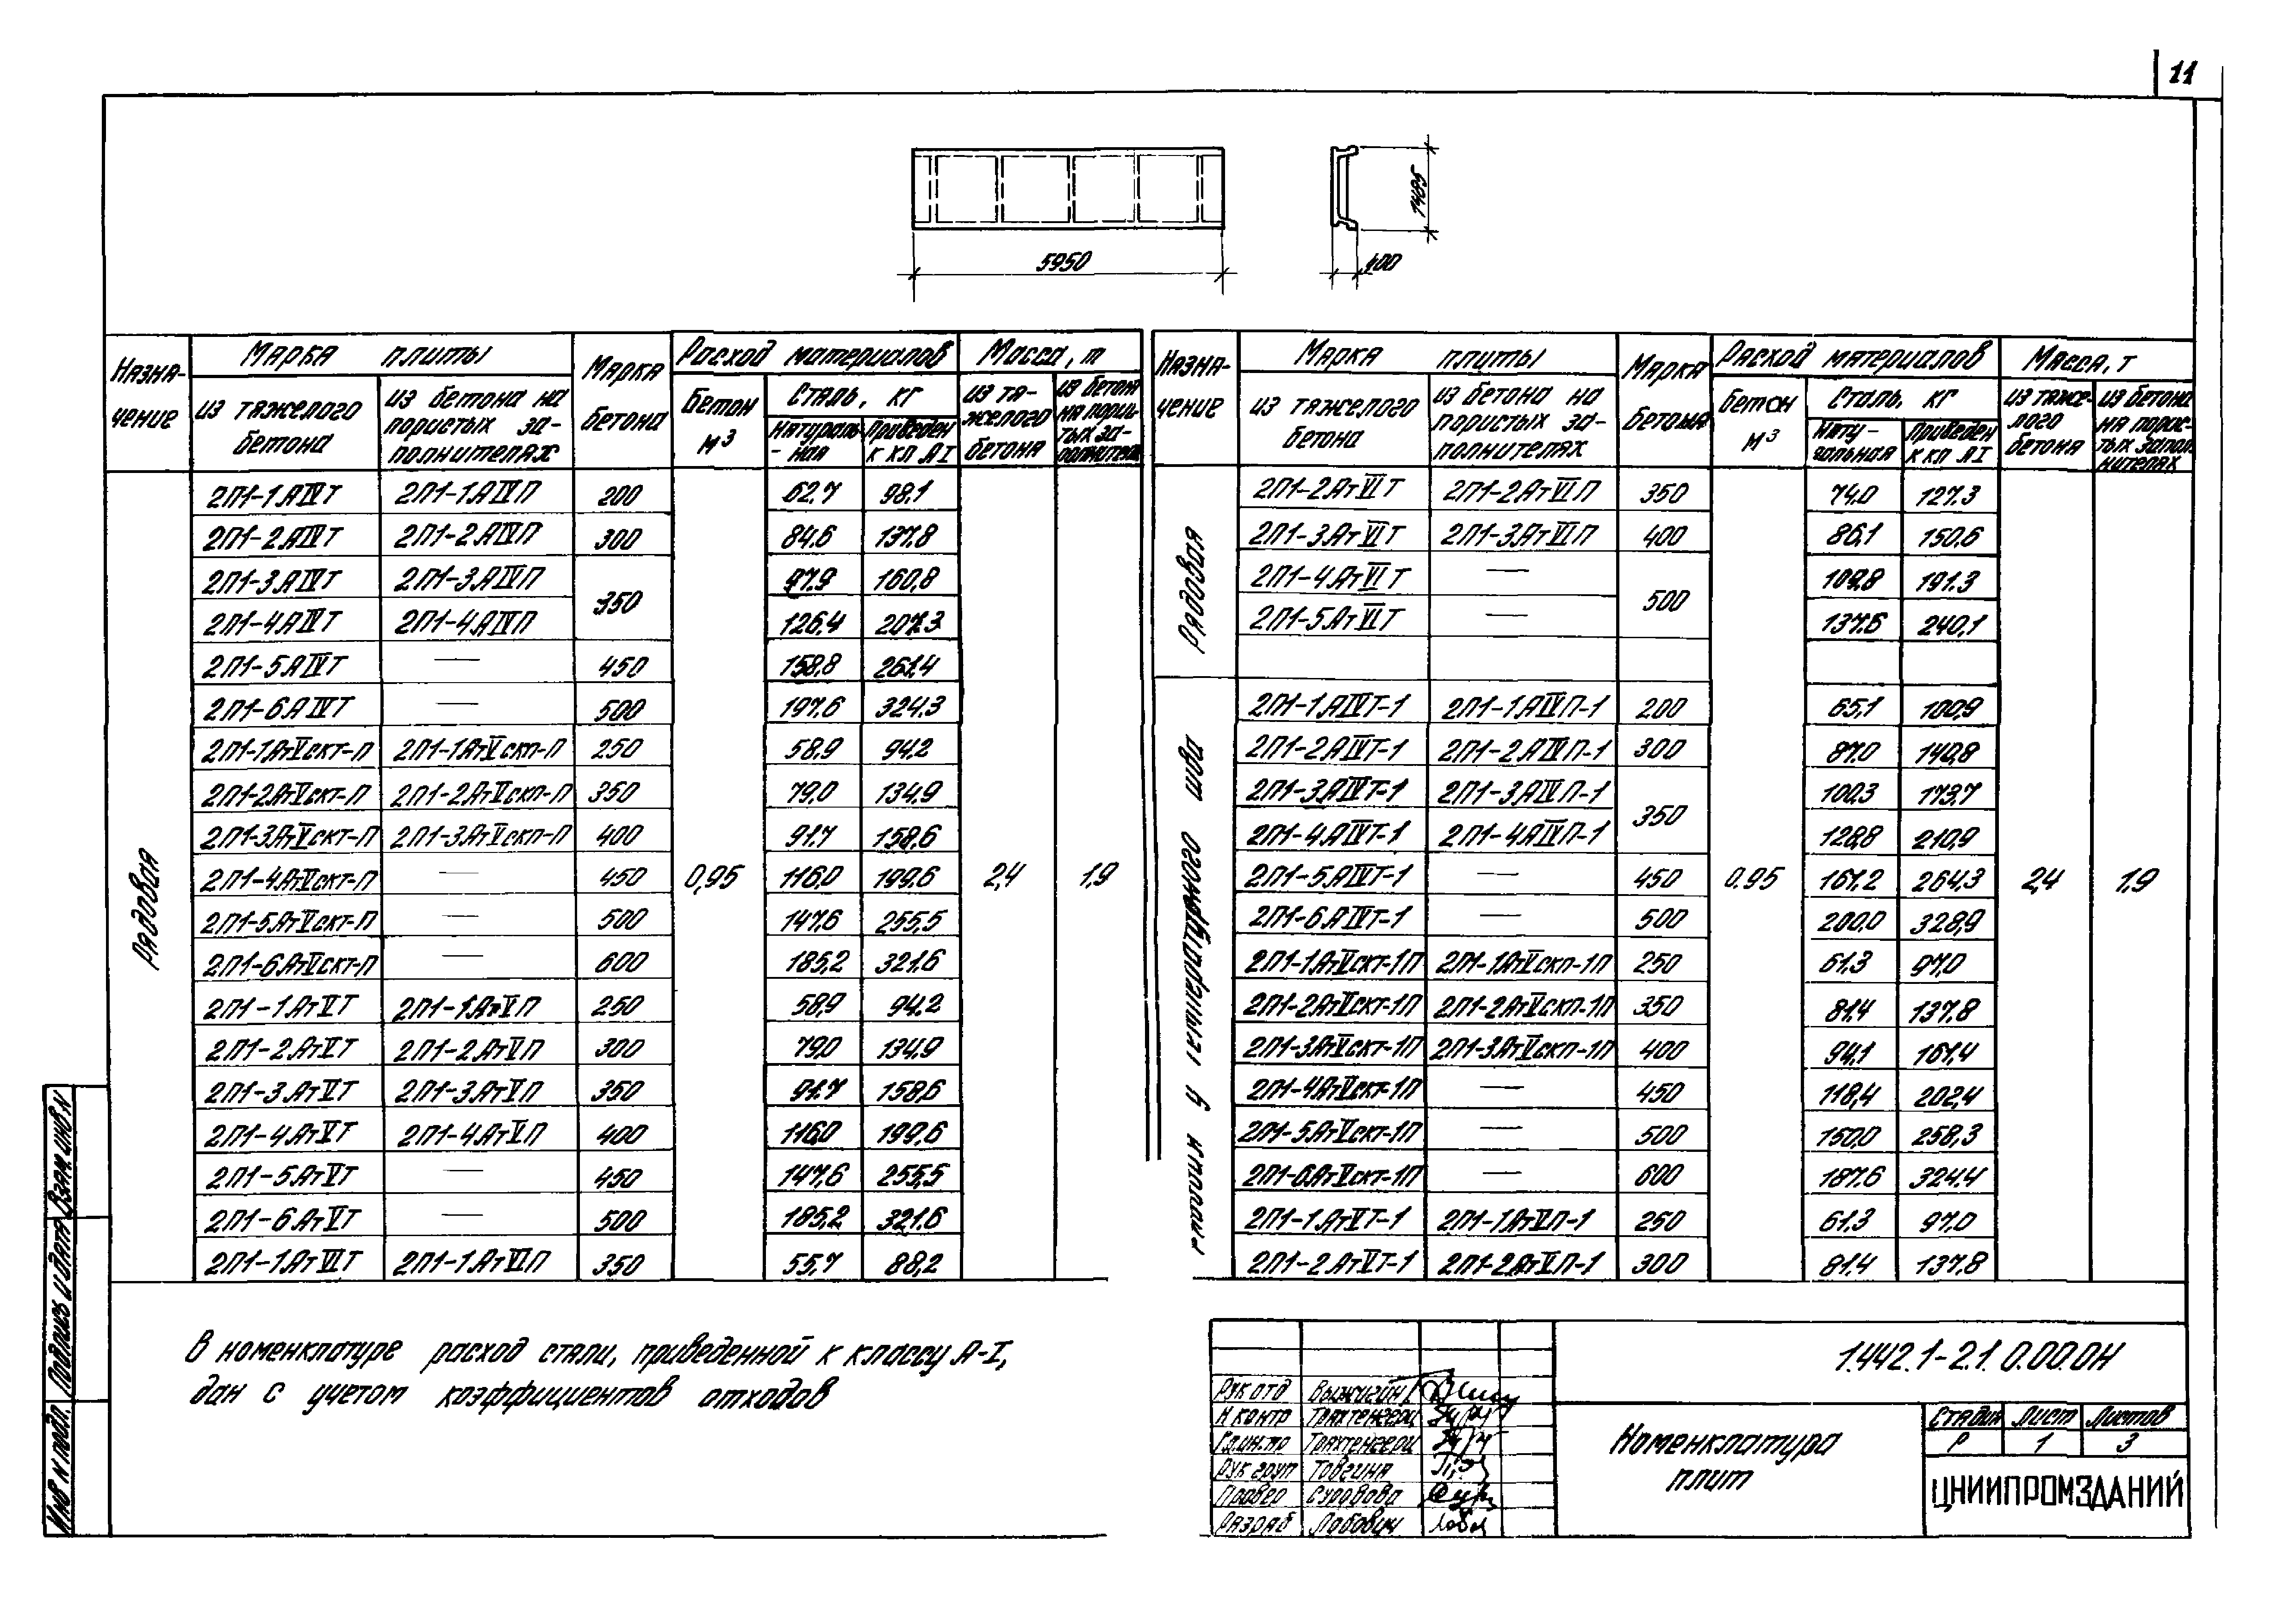 11
5950
400
1485
Назна-
чение
Марка плиты
из тяжелого
бетона
из бетона на
пористых за-
полнителях
Марка
бетона
Расход материалов
Бетон
м³
Сталь, кг
Натураль-
ная
Приведен
к кл АI
Масса, т
из тя-
желого
бетона
из бетона
на порис-
тых за-
полнителях
Рядовая
2П1-1АIVТ 2П1-1АIVП 200 62,7 98,1
2П1-2АIVТ 2П1-2АIVП 300 84,6 137,8
2П1-3АIVТ 2П1-3АIVП 350 97,9 160,8
2П1-4АIVТ 2П1-4АIVП 126,4 207,3
2П1-5АIVТ — 450 158,8 261,4
2П1-6АIVТ — 500 197,6 324,3
2П1-1АтVскт-П 2П1-1АтVскп-П 250 58,9 94,2
2П1-2АтVскт-П 2П1-2АтVскп-П 350 79,0 134,9
2П1-3АтVскт-П 2П1-3АтVскп-П 400 91,7 158,6
2П1-4АтVскт-П — 450 0,95 116,0 199,6 2,4 1,9
2П1-5АтVскт-П — 500 147,6 255,5
2П1-6АтVскт-П — 600 185,2 321,6
2П1-1АтVТ 2П1-1АтVП 250 58,9 94,2
2П1-2АтVТ 2П1-2АтVП 300 79,0 134,9
2П1-3АтVТ 2П1-3АтVП 350 91,7 158,6
2П1-4АтVТ 2П1-4АтVП 400 116,0 199,6
2П1-5АтVТ — 450 147,6 255,5
2П1-6АтVТ — 500 185,2 321,6
2П1-1АтVIТ 2П1-1АтVIП 350 55,7 88,2
Назна-
чение
Марка плиты
из тяжелого
бетона
из бетона на
пористых за-
полнителях
Марка
бетона
Расход материалов
бетон
м³
Сталь, кг
Нату-
ральная
Приведен
к кл АI
Масса, т
из тяже-
лого
бетона
из бетона
на порис-
тых запол
нителях
Рядовая
2П1-2АтVIТ 2П1-2АтVIП 350 74,0 127,3
2П1-3АтVIТ 2П1-3АтVIП 400 86,1 150,6
2П1-4АтVIТ — 500 109,8 191,3
2П1-5АтVIТ — 137,6 240,1
у температурного шва
2П1-1АIVТ-1 2П1-1АIVП-1 200 65,1 100,9
2П1-2АIVТ-1 2П1-2АIVП-1 300 87,0 140,8
2П1-3АIVТ-1 2П1-3АIVП-1 350 100,3 173,7
2П1-4АIVТ-1 2П1-4АIVП-1 128,8 210,9
2П1-5АIVТ-1 — 450 0.95 161,2 264,3 2,4 1,9
2П1-6АIVТ-1 — 500 200,0 328,9
2П1-1АтVскт-1П 2П1-1АтVскп-1П 250 61,3 97,0
2П1-2АтVскт-1П 2П1-2АтVскп-1П 350 81,4 137,8
2П1-3АтVскт-1П 2П1-3АтVскп-1П 400 94,1 161,4
2П1-4АтVскт-1П — 450 118,4 202,4
2П1-5АтVскт-1П — 500 150,0 258,3
2П1-6АтVскт-1П — 600 187,6 324,4
2П1-1АтVТ-1 2П1-1АтVП-1 250 61,3 97,0
2П1-2АтVТ-1 2П1-2АтVП-1 300 81,4 137,8
В номенклатуре расход стали, приведенной к классу А-I,
дан с учетом коэффициентов отходов
1.442.1-2.1 0.00.0Н
Рук отд Выжигин
Н контр Трахтенгерц
Гл.ин.пр Трахтенгерц
Рук груп Товгина
Провер
Разраб Лобович
Номенклатура
плит
Стадия Лист Листов
Р 1 3
ЦНИИПРОМЗДАНИЙ
Взам.инв.N
Подпись и дата
Инв N подл.